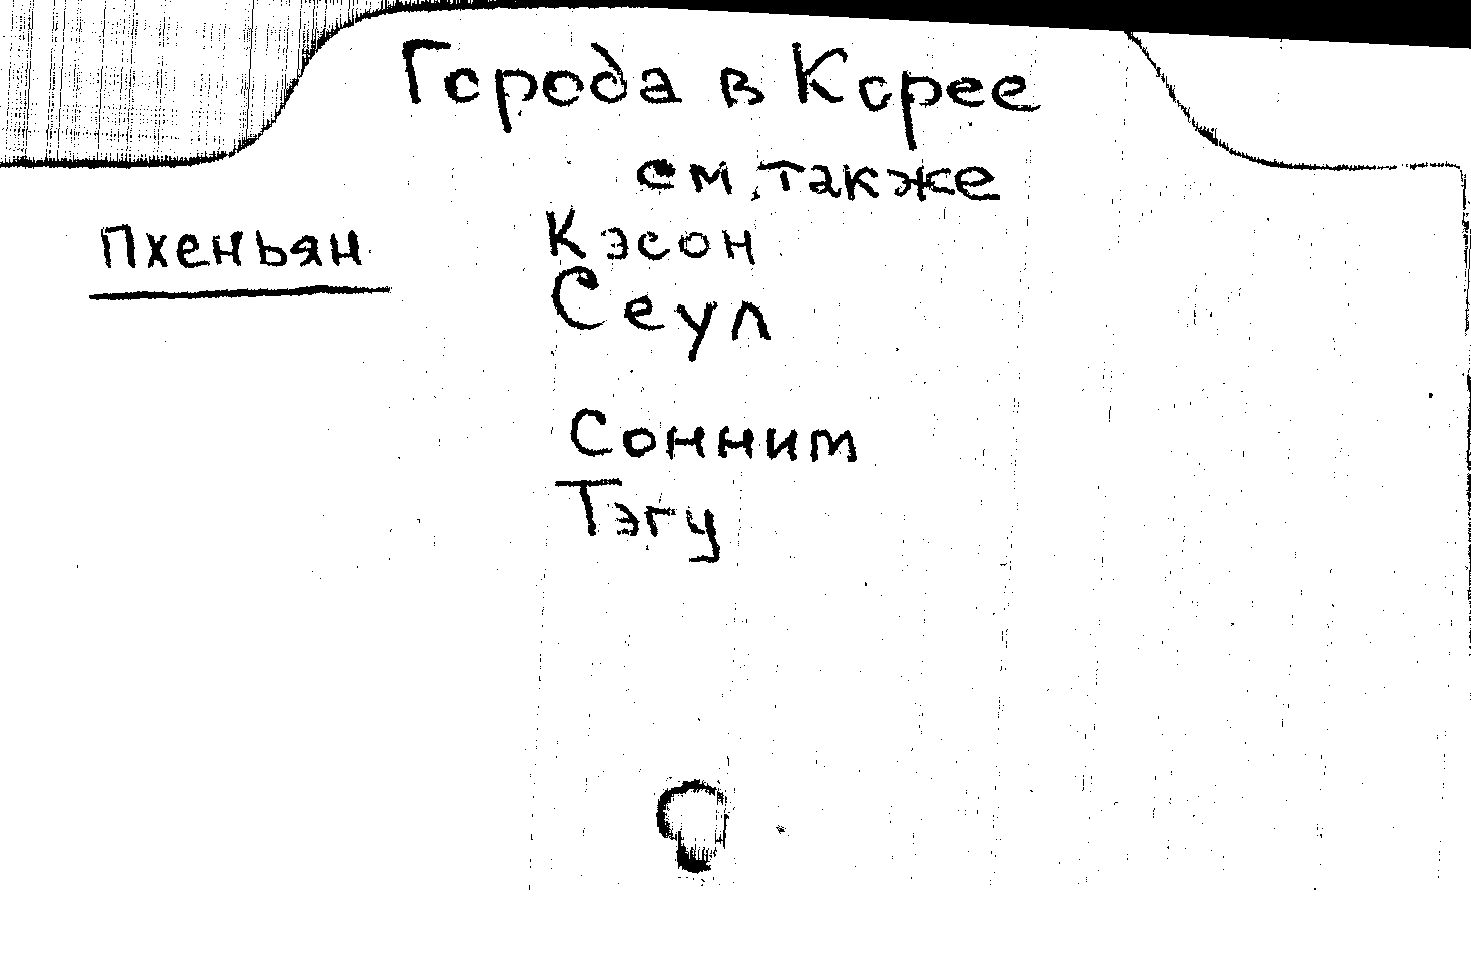 Города в Корее
см. также
Пхеньян
Кэсон
Сеул
Сонним
Тэгу